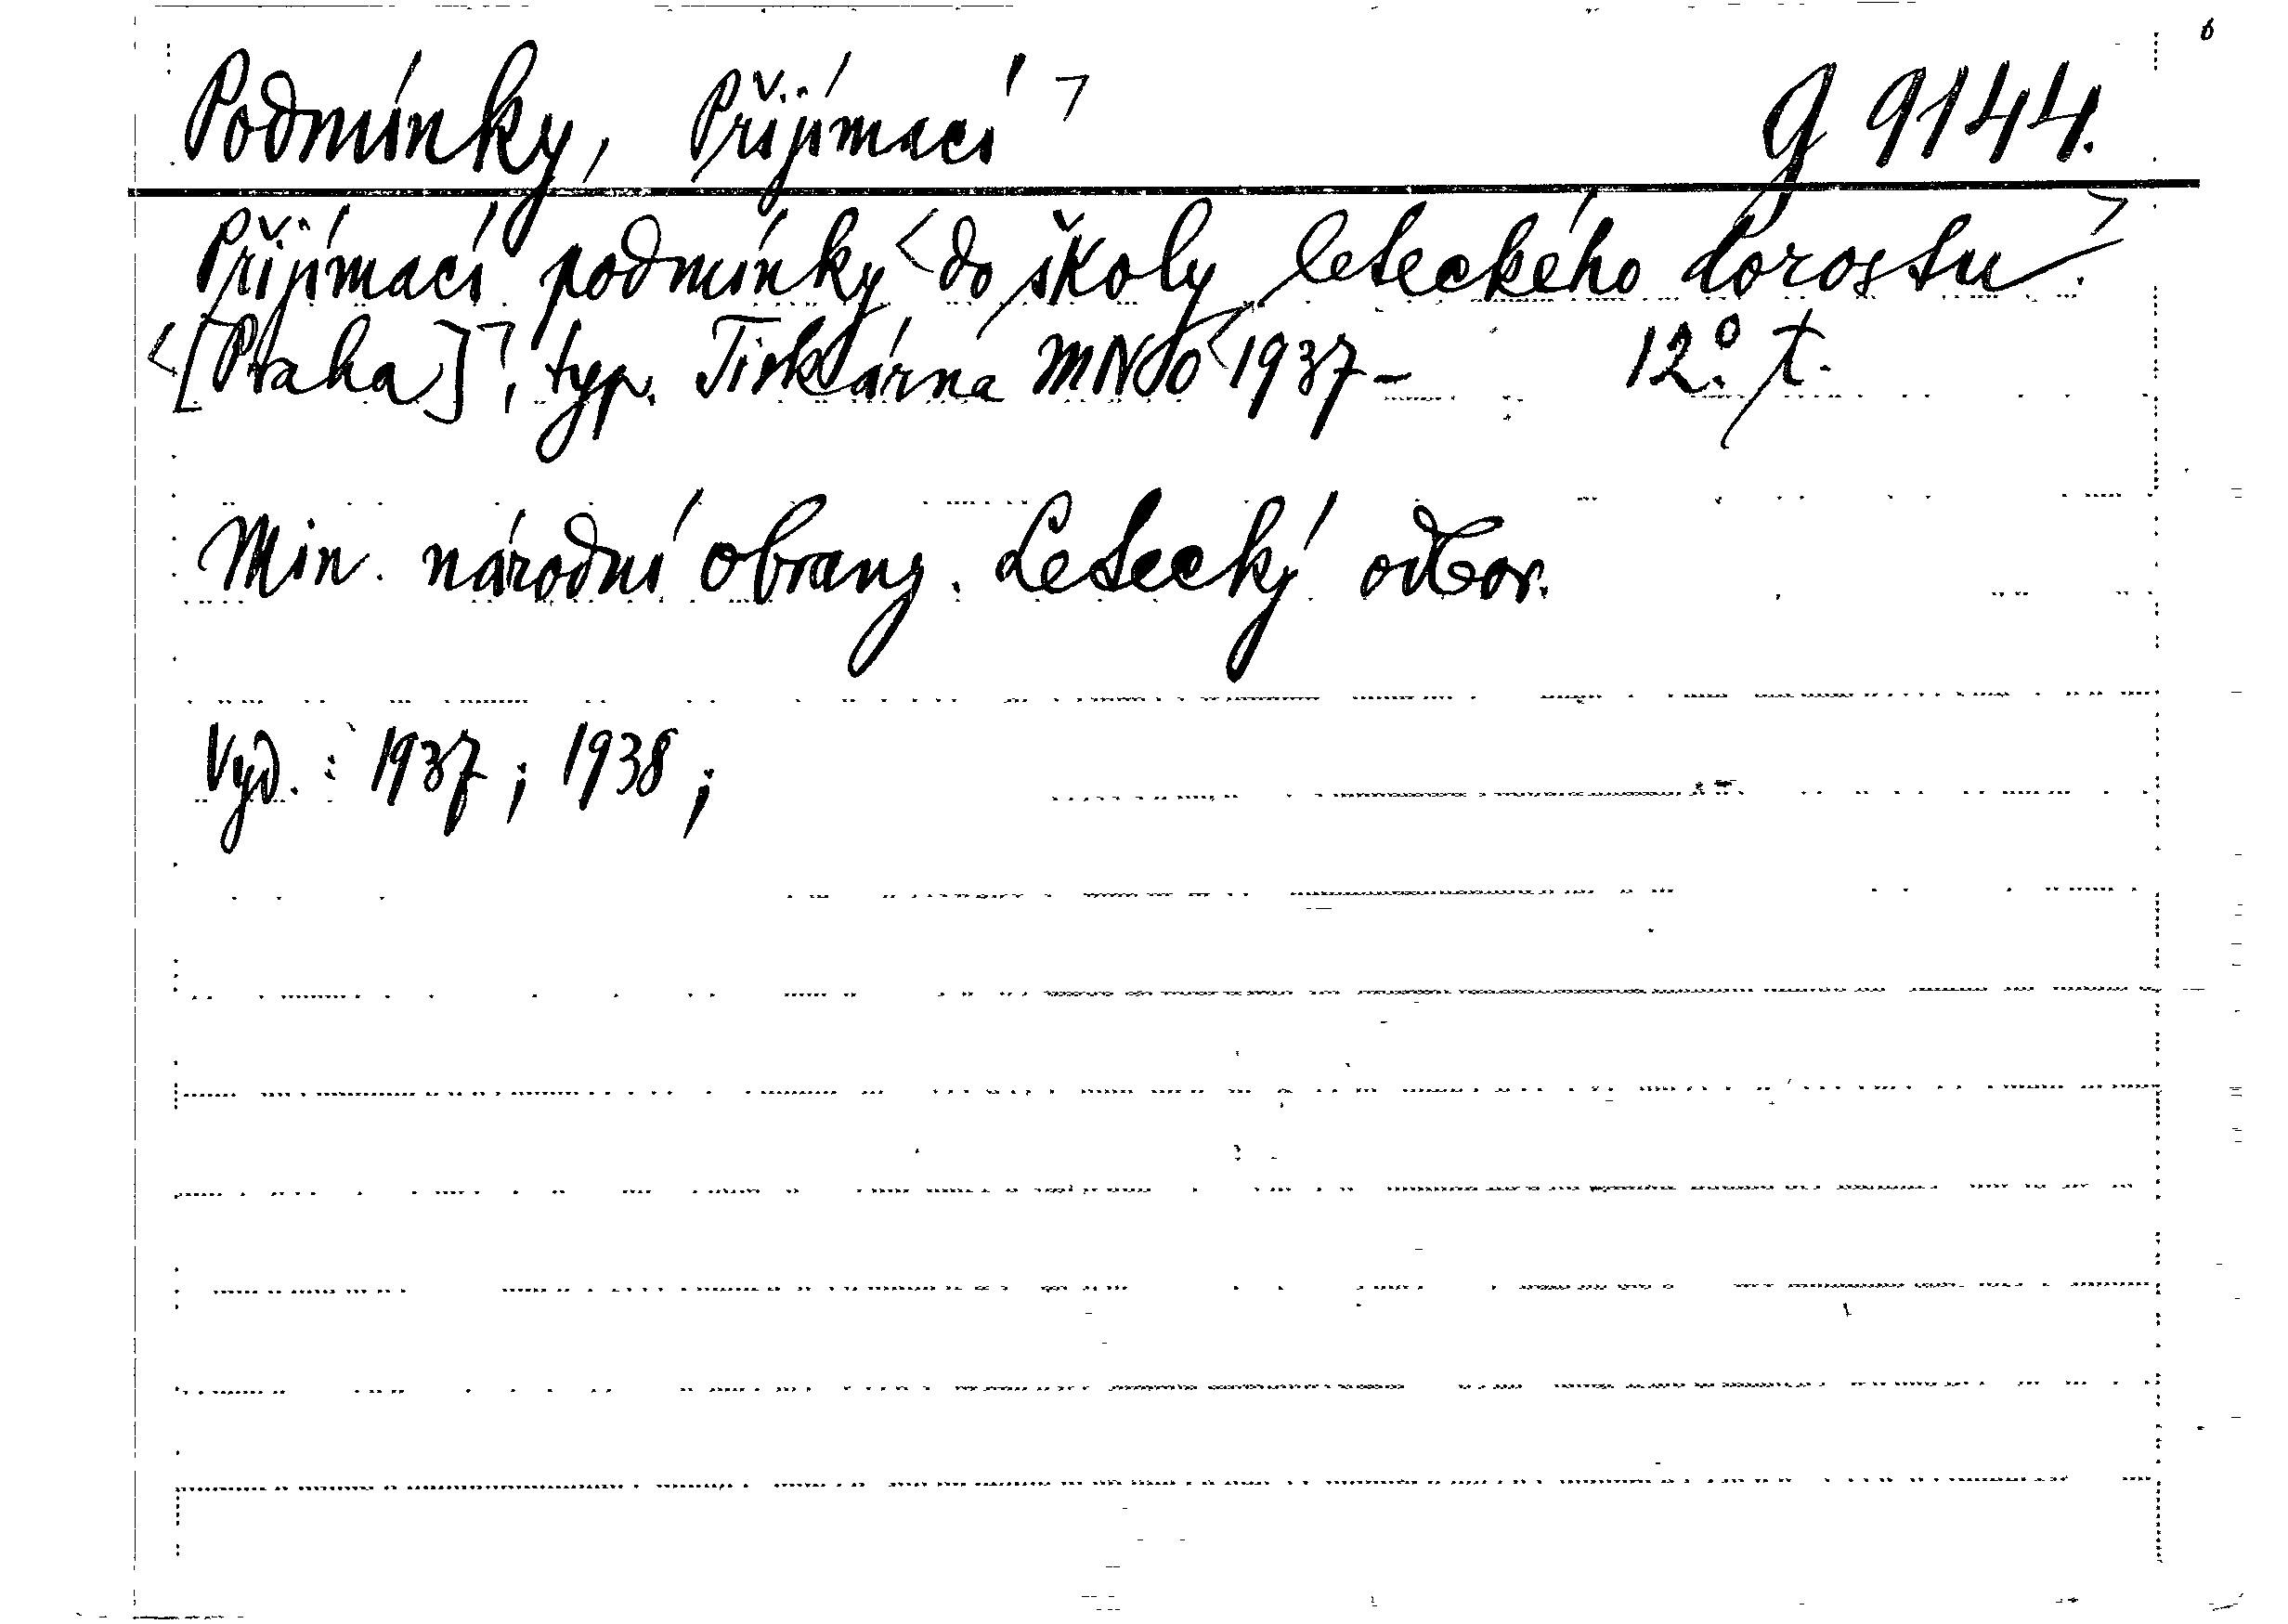 Podmínky, Přijímací ⌝ g 9144.
Přijímací podmínky <do školy leteckého dorostu⌝.
<[Praha]⌝, typ. Tiskárna MNO <1937- 12°. t.
Min. národní obrany. Letecký odbor.
Vyd.: 1937; 1938;